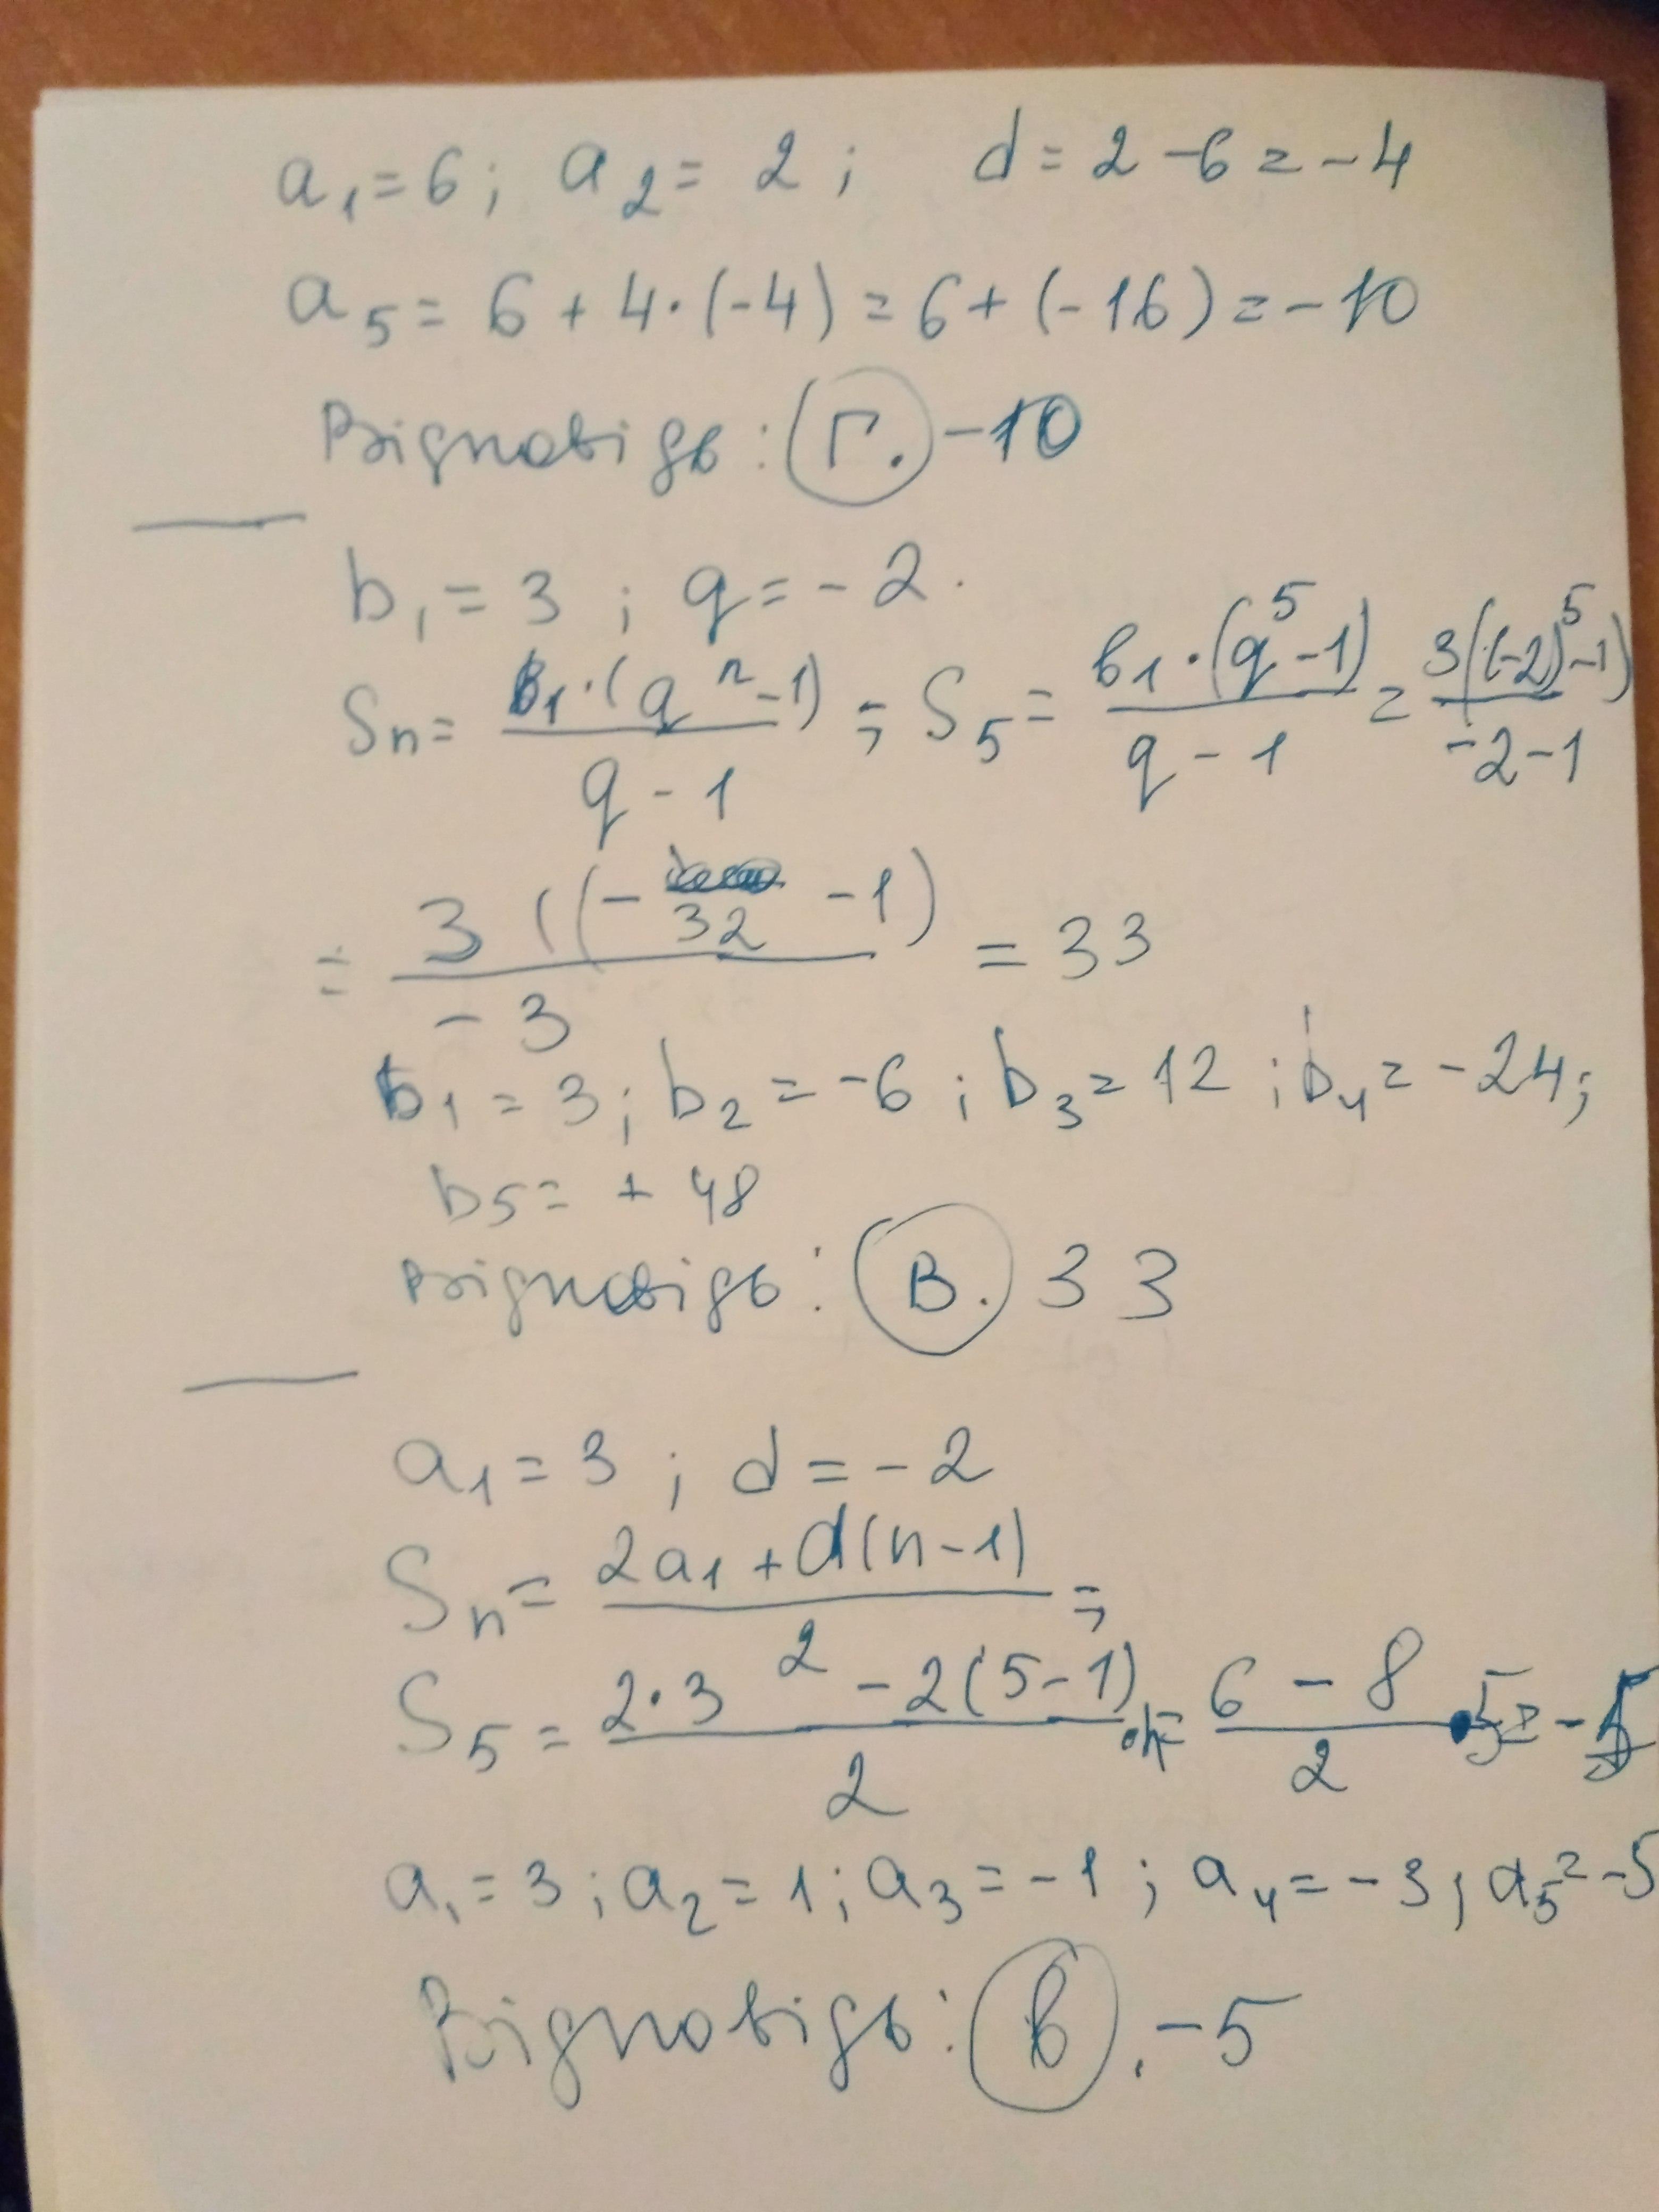 a₁ = 6; a₂ = 2; d = 2 - 6 = -4
a₅ = 6 + 4·(-4) = 6 + (-16) = -10
Відповідь: Г. -10
b₁ = 3; q = -2.
Sₙ = (b₁·(qⁿ - 1))/(q - 1); S₅ = (b₁·(q⁵ - 1))/(q - 1) = (3((-2)⁵ - 1))/(-2 - 1)
= (3((-32 - 1))/(-3) = 33
b₁ = 3; b₂ = -6; b₃ = 12; b₄ = -24;
b₅ = +48
Відповідь: В. 33
a₁ = 3; d = -2
Sₙ = (2a₁ + d(n - 1))/2;
S₅ = (2·3 - 2(5 - 1))/2 · = (6 - 8)/2 · 5 = -5
a₁ = 3; a₂ = 1; a₃ = -1; a₄ = -3; a₅ = -5
Відповідь: В. -5